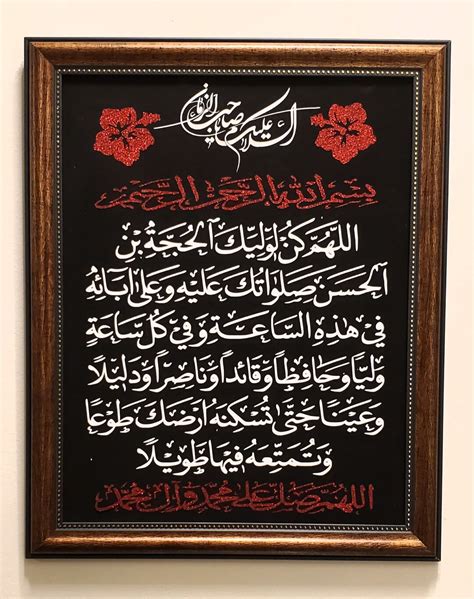 السلام علیک یا صاحب الزمان
بسم الله الرحمن الرحيم
اللهم كن لوليك الحجة بن
الحسن صلواتك عليه وعلى ابائه
في هذه الساعة وفي كل ساعة
وليا وحافظا وقائدا وناصرا ودليلا
وعينا حتى تسكنه ارضك طوعا
وتمتعه فيها طويلا
اللهم صل على محمد وآل محمد